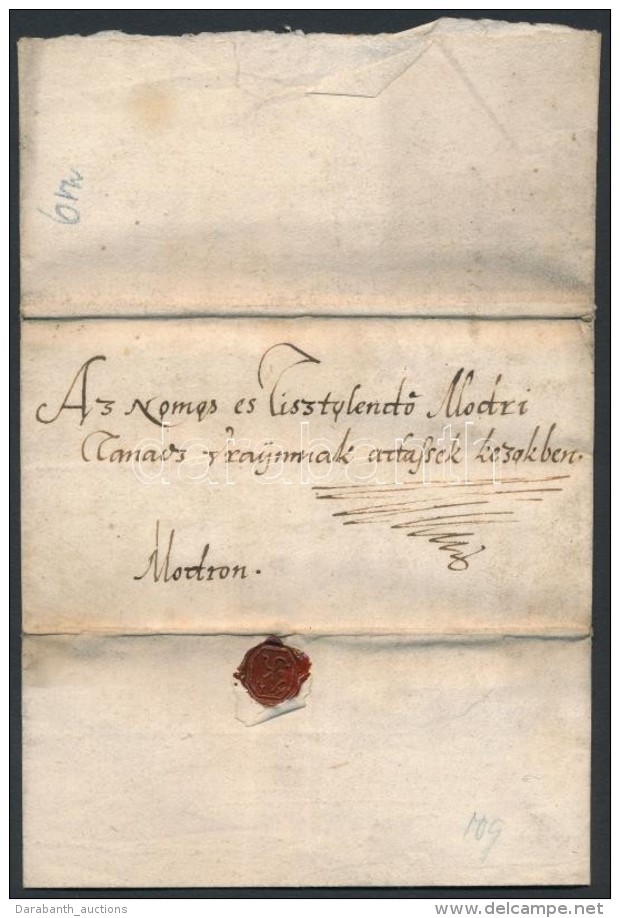 Az Nemes es Tisztelendő Modri
Tanacz Vraijmnak adassek kezekben.
Modron.
109
darabanth
Darabanth_auctions
www.delcampe.net